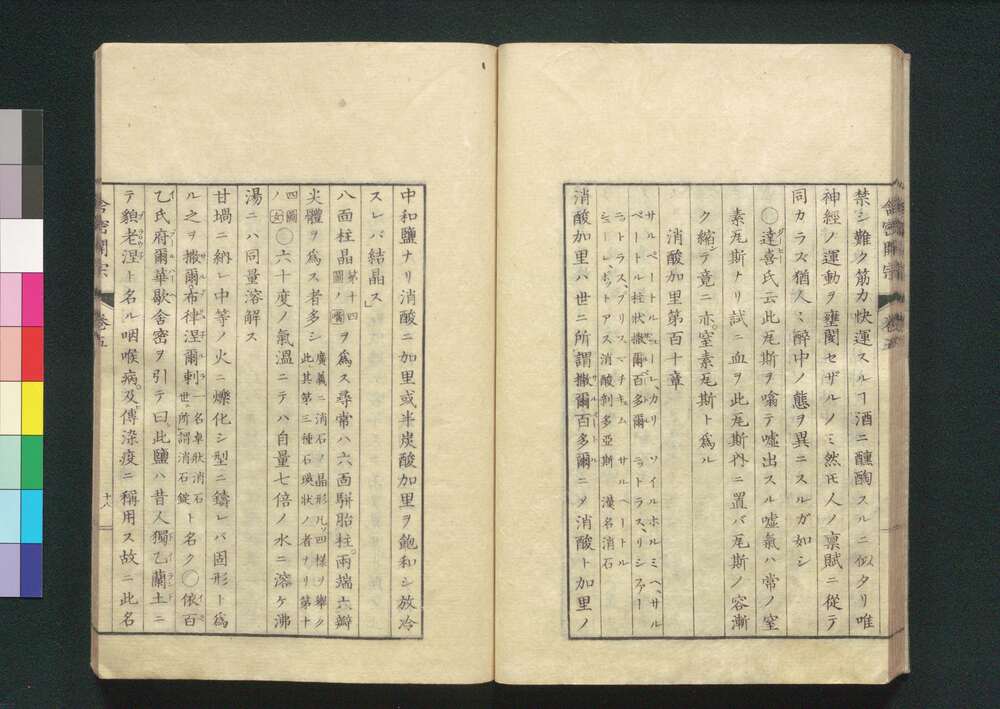 禁シ難ク筋力快運スルヿ酒ニ醺醄スルニ似タリ唯
神經ノ運動ヲ壅閼セザルノミ然𪜈人ノ稟賦ニ從テ
同カラズ猶人ミ醉中ノ態ヲ異ニスルガ如シ
◯達喜氏云此瓦斯ヲ噏テ嘘出スル嘘氣ハ常ノ窒
素瓦斯トリ試ニ血ヲ此瓦斯內ニ置バ瓦斯ノ容漸
ク縮テ竟ニ亦窒素瓦斯ト爲ル
消酸加里第百十章
サルペートルシューレ、カリ ソイルホルミヘ、サル
ペートル 柱狀撒爾百多爾 ニトラス、リシファー
ニトラス、プリスマチキュム サルペートル
シーレ、ポットアス 消酸剝多亞斯 漢名消石
消酸加里ハ世ニ所謂撒爾百多爾ニメ消酸ト加里ノ
舎密開宗 卷五
中和鹽ナリ消酸ニ加里或半炭酸加里ヲ飽和シ放冷
スレバ結晶ス
八面柱晶第十四圖ノ嘴ヲ爲ス尋常ハ六面駢胎柱兩端六瓣
尖體ヲ爲ス者多シ廣義ニ消石ノ晶形凡ソ四樣ヲ擧ク此其第三種石瑛狀ノ者ナリ第十
四圖ノ◯六十度ノ氣溫ニテハ自量七倍ノ水ニ溶ケ沸
湯ニハ同量溶解ス
甘堝ニ納レ中等ノ火ニ爍化シ型ニ鑄レバ固形ト爲
ル之ヲ撒爾布律涅爾剌一名卓狀消石世ニ所謂消石錠ト名ク◯依百
乙氏府爾華歇舍密ヲ引テ曰此鹽ハ昔人獨乙蘭土ニ
テ貌老涅ト名ル咽喉病及傳染疫ニ稱用ス故ニ此名
舎密開宗 卷五 十八